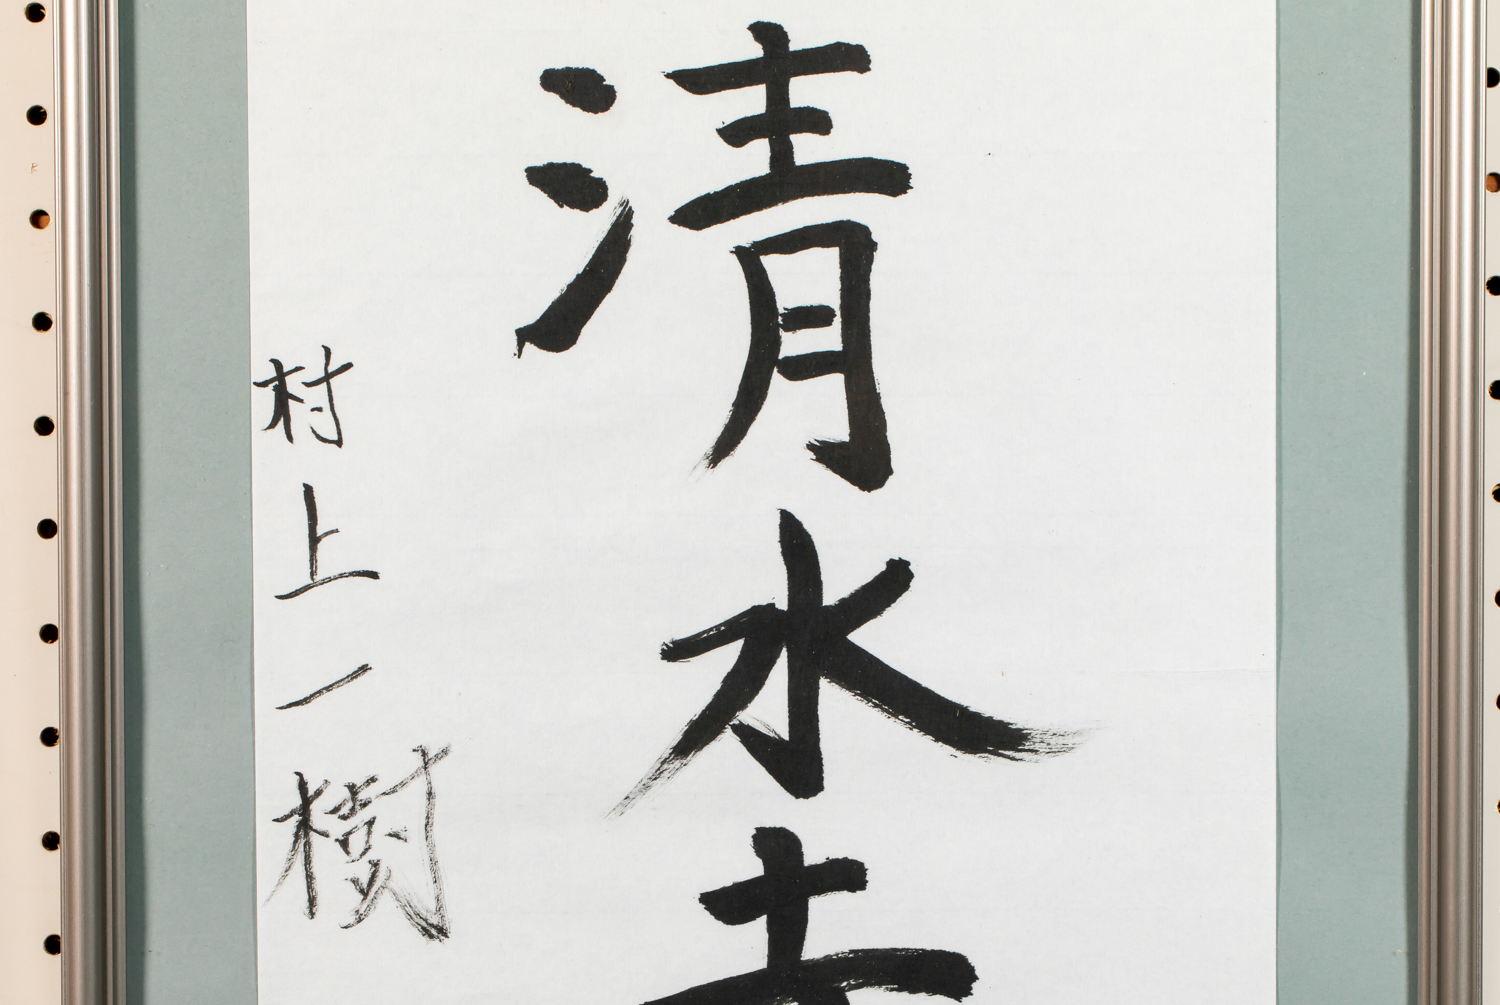 清水
村上一樹